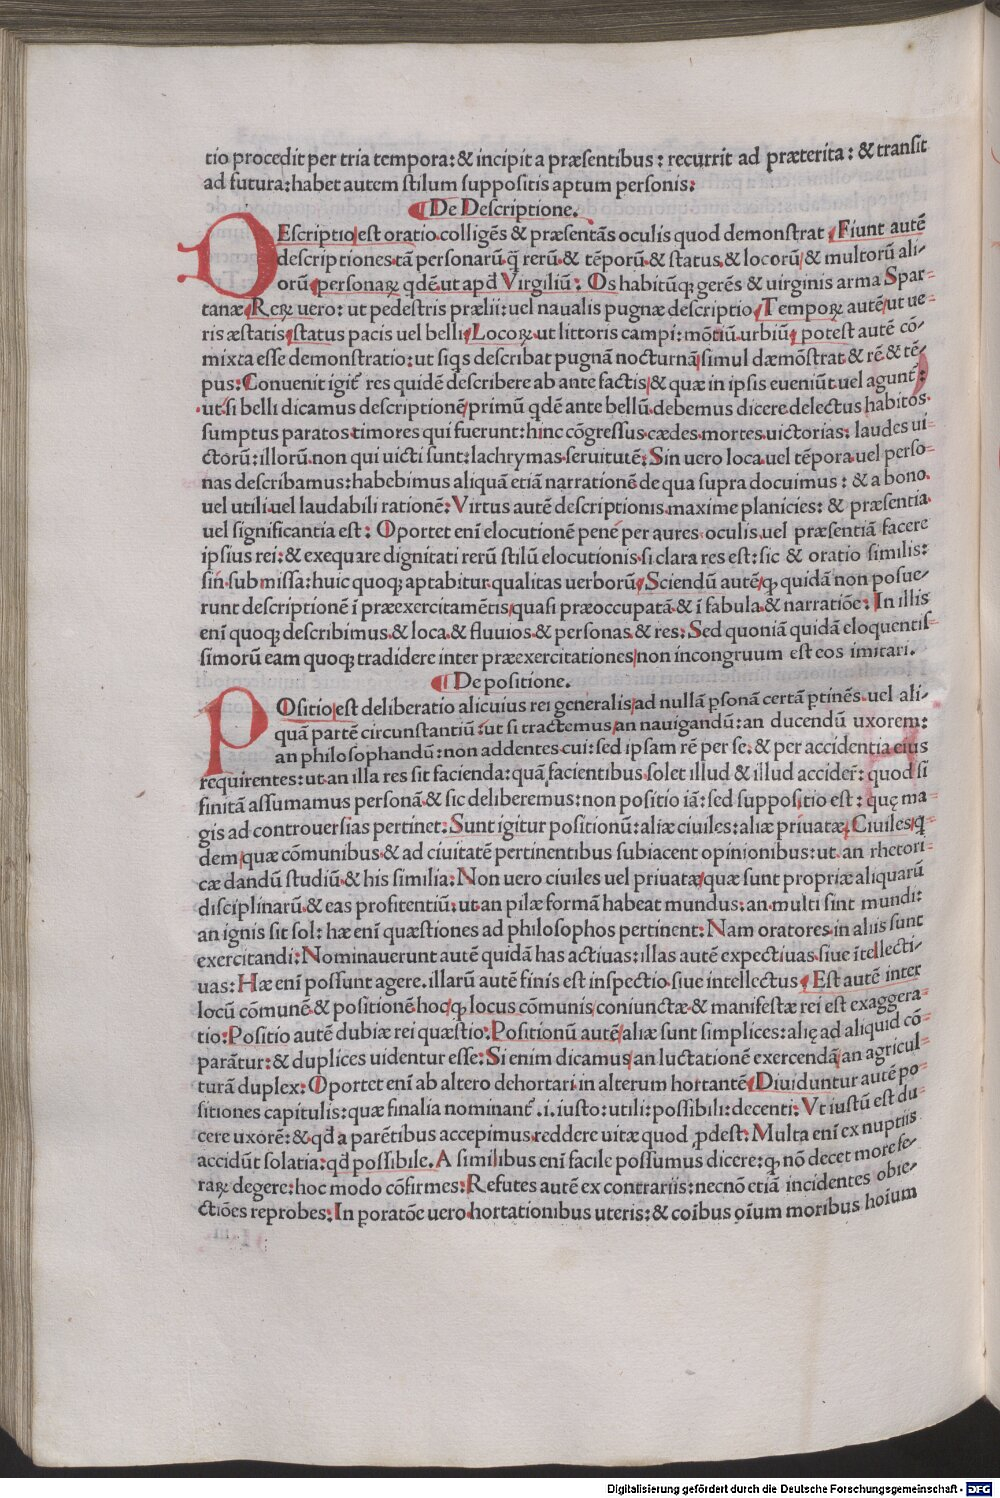 tio procedit per tria tempora: & incipit a præsentibus: recurrit ad præterita: & transit
ad futura: habet autem stilum suppositis aptum personis:
De Descriptione.
DEscriptio est oratio colligẽs & præsentãs oculis quod demonstrat. Fiunt autẽ
descriptiones tã personarũ q̃ rerũ & tẽporũ & status & locorũ & multorũ ali/
orũ personaꝝ qdẽ ut apd Virgiliũ: Os habitũqꝫ gerẽs & uirginis arma Spar-
tanæ. Reꝝ uero: ut pedestris prælii: uel naualis pugnæ descriptio. Tempoꝝ autẽ ut ue-
ris æstatis status pacis uel belli. Locoꝝ ut littoris campi: mõtiũ urbiũ potest autẽ cõ/
mixta esse demonstratio: ut siqs describat pugnã nocturnã simul dæmõstrat & rẽ & tẽ/
pus: Conuenit igit̃ res quidẽ describere ab ante factis & quæ in ipsis eueniũt uel agunt̃:
ut si belli dicamus descriptionẽ primũ qdẽ ante bellũ debemus dicere delectus habitos
sumptus paratos timores qui fuerunt: hinc cõgressus cædes mortes uictorias: laudes ui-
ctorũ: illorũ non qui uicti sunt: lachrymas seruitutẽ: Sin uero loca uel tẽpora uel perso-
nas describamus: habebimus aliquã etiã narrationẽ de qua supra docuimus: & a bono
uel utili uel laudabili rationẽ: Virtus autẽ descriptionis maxime planicies: & præsentia
uel significantia est: Oportet enĩ elocutionẽ pene per aures oculis uel præsentiã facere
ipsius rei: & exequare dignitati rerũ stilũ elocutionis si clara res est: sic & oratio similis:
siñ submissa: huic quoqꝫ aptabitur qualitas uerborũ. Sciendũ autẽ ꝙ quidã non posue/
runt descriptionẽ ĩ præexercitamẽtis quasi præoccupatã & ĩ fabula & narratiõe: In illis
enĩ quoqꝫ describimus & loca & fluuios & personas & res: Sed quoniã quidã eloquentis-
simorũ eam quoqꝫ tradidere inter præexercitationes non incongruum est eos imitari.
De positione.
POsitio est deliberatio alicuius rei generalis ad nullã ꝑsonã certã ꝑtinẽs uel ali/
quã partẽ circunstantiũ: ut si tractemus an nauigandũ: an ducendũ uxorem:
an philosophandũ: non addentes cui: sed ipsam rẽ per se & per accidentia eius
requirentes: ut an illa res sit facienda: quã facientibus solet illud & illud accider̃: quod si
finitã assumamus personã & sic deliberemus: non positio iã: sed suppositio est: quę ma-
gis ad controuersias pertinet: Sunt igitur positionũ: aliæ ciuiles: aliæ priuatæ. Ciuiles q-
dem quæ cõmunibus & ad ciuitatẽ pertinentibus subiacent opinionibus: ut an rhetori-
cæ dandũ studiũ & his similia: Non uero ciuiles uel priuatæ quæ sunt propriæ aliquarũ
disciplinarũ & eas profitentiũ: ut an pilæ formã habeat mundus: an multi sint mundi:
an ignis sit sol: hæ enĩ quæstiones ad philosophos pertinent: Nam oratores in aliis sunt
exercitandi: Nominauerunt autẽ quidã has actiuas: illas autẽ expectiuas siue ĩtellecti/
uas: Hæ enĩ possunt agere illarũ autẽ finis est inspectio siue intellectus. Est autẽ inter
locũ cõmunẽ & positionẽ hoc ꝙ locus cõmunis coniunctæ & manifestæ rei est exaggera-
tio: Positio autẽ dubiæ rei quæstio: Positionũ autẽ aliæ sunt simplices: alię ad aliquid cõ-
parãtur: & duplices uidentur esse: Si enim dicamus an luctationẽ exercendã an agricul-
turã duplex: Oportet enĩ ab altero dehortari in alterum hortantẽ. Diuiduntur autẽ po-
sitiones capitulis: quæ finalia nominant̃ .i. iusto: utili: possibili: decenti: Vt iustũ est du-
cere uxorẽ: & qd a parẽtibus accepimus reddere uitæ quod ꝓdest: Multa enĩ ex nuptiis
accidũt solatia: qd possibile. A similibus enĩ facile possumus dicere: ꝙ nõ decet more fe/
raꝝ degere: hoc modo cõfirmes: Refutes autẽ ex contrariis: necnõ etiã incidentes obie/
ctiões reprobes: In ꝑoratõe uero hortationibus uteris: & coĩbus oĩum moribus hoĩum
Digitalisierung gefördert durch die Deutsche Forschungsgemeinschaft - DFG